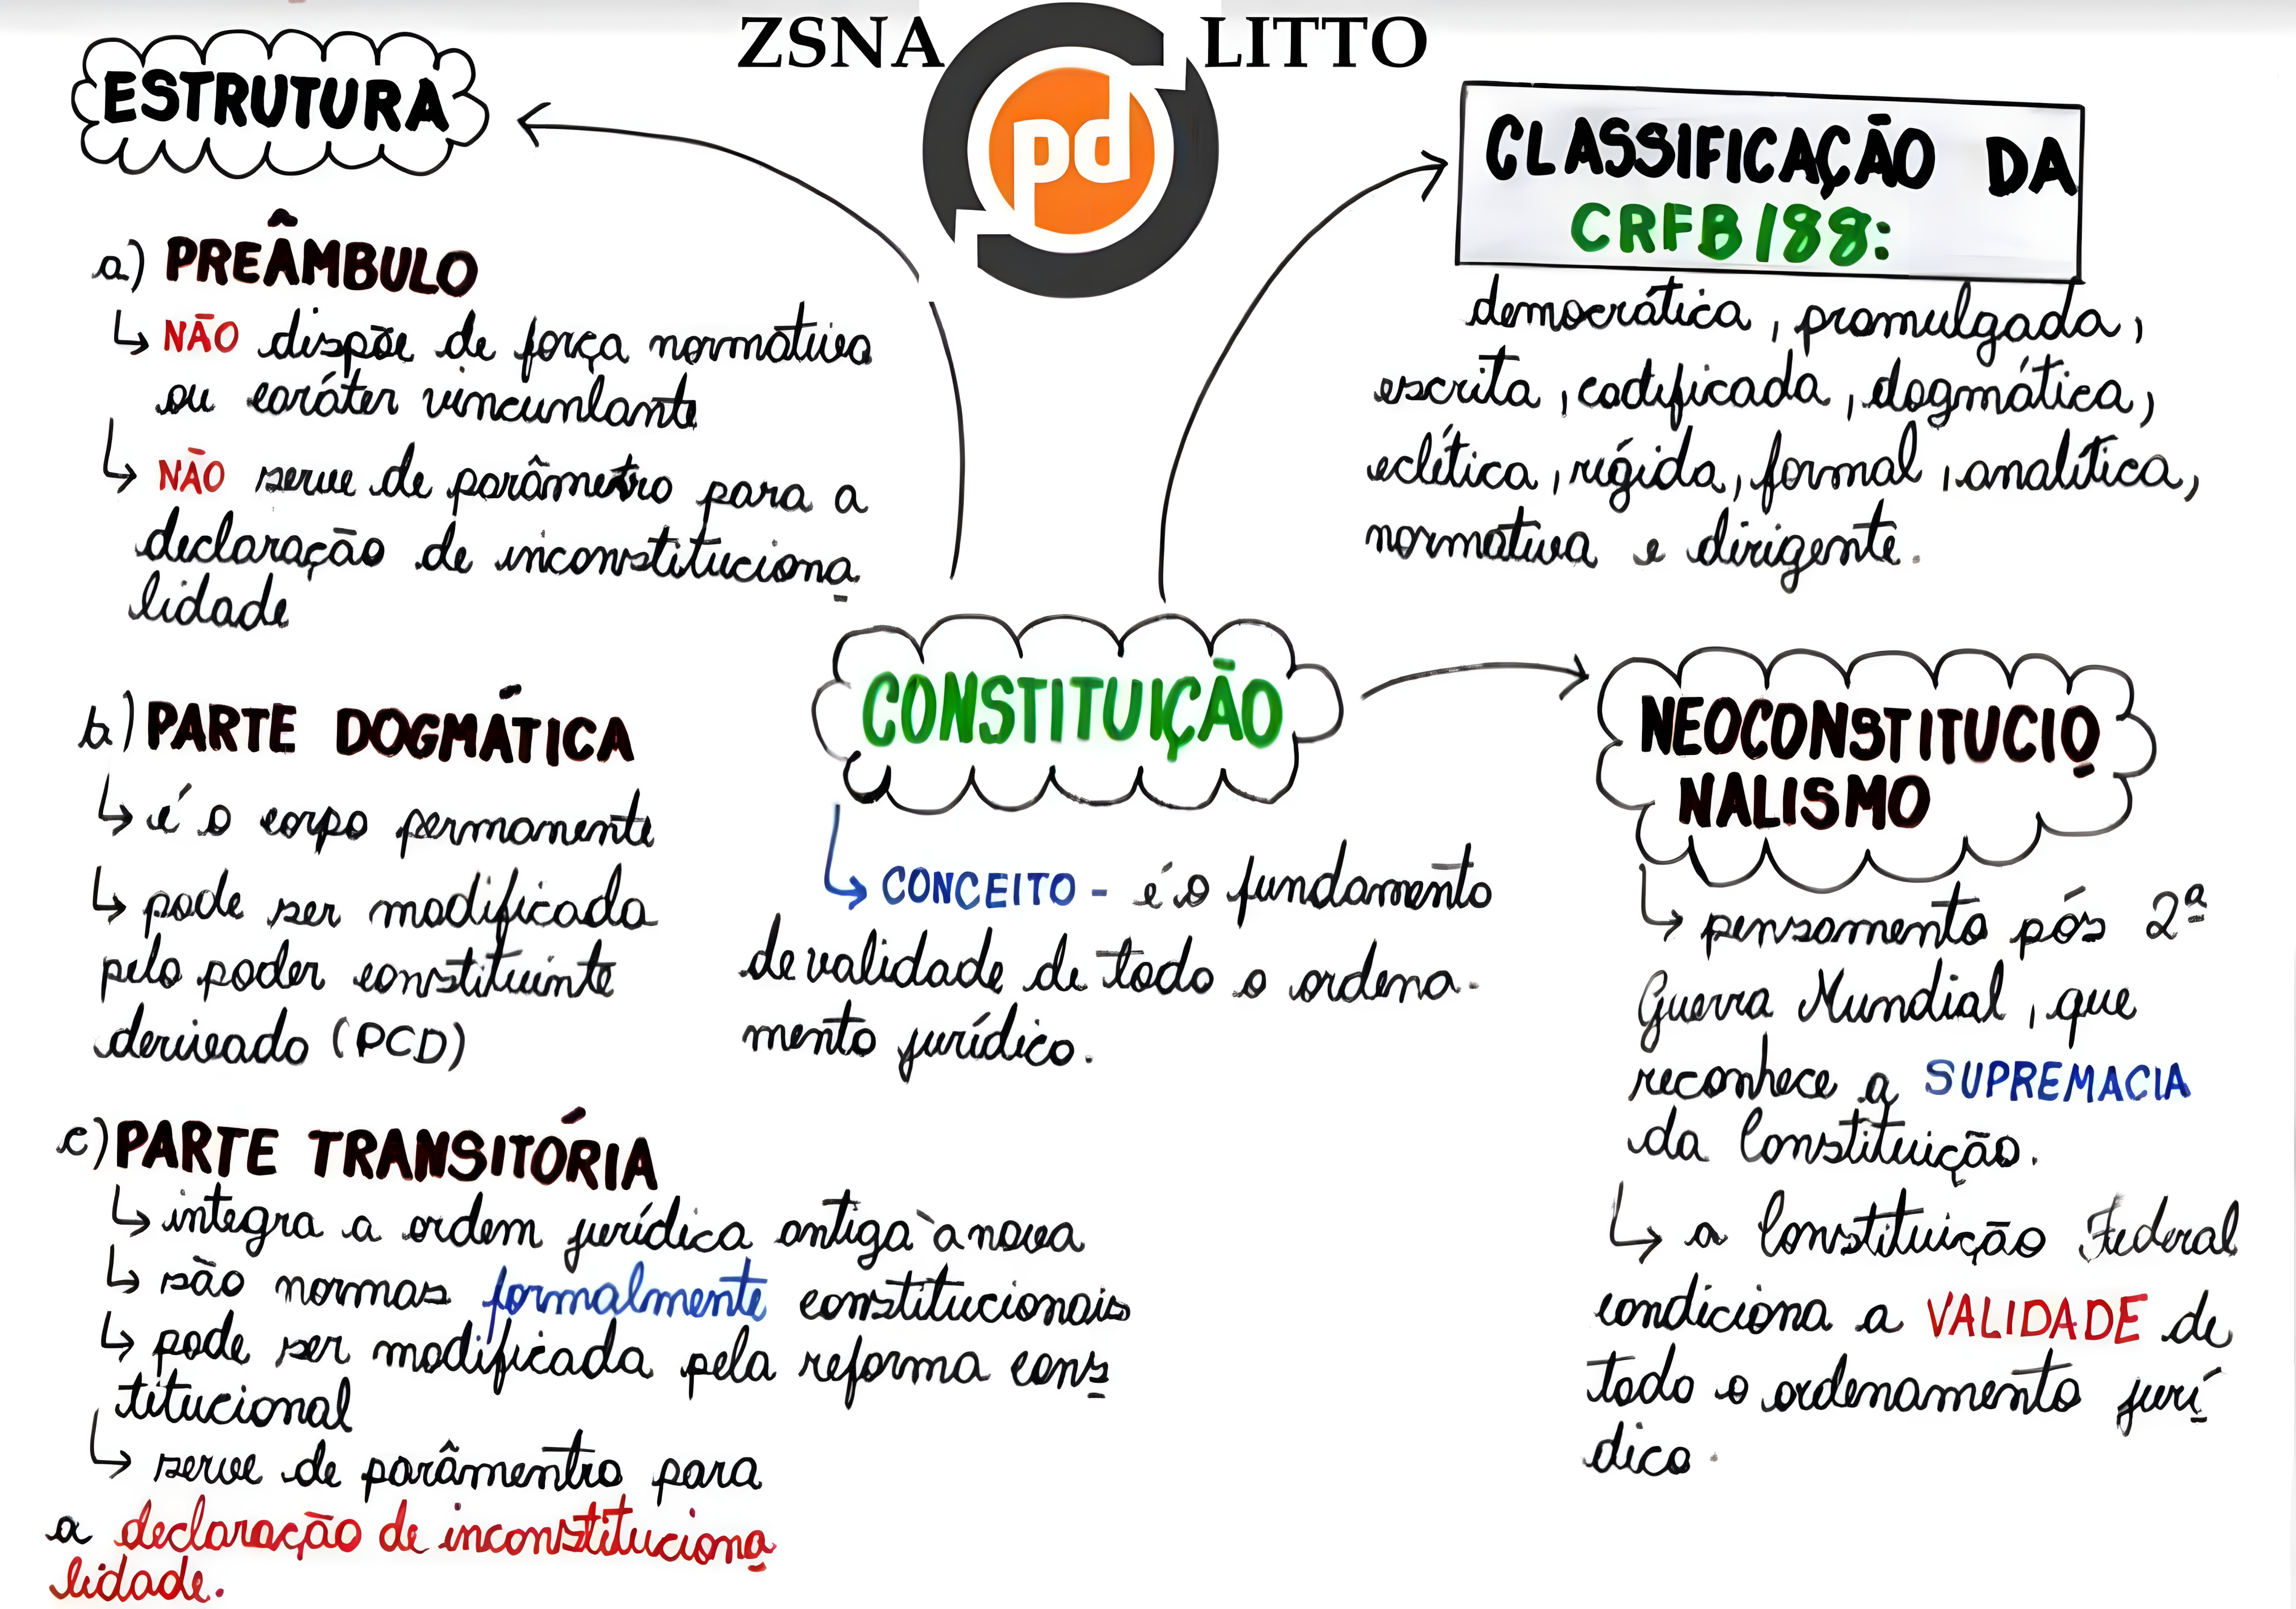 ZSNA pd LITTO
ESTRUTURA
a) PREÂMBULO
NÃO dispõe de força normativa
ou caráter vincunlante
NÃO serve de parâmetro para a
declaração de inconstituciona
lidade
b) PARTE DOGMÁTICA
é o corpo permanente
pode ser modificada
pelo poder constituinte
derivado (PCD)
c) PARTE TRANSITÓRIA
integra a ordem jurídica antiga à nova
são normas formalmente constitucionais
pode ser modificada pela reforma cons
titucional
serve de parâmentro para
a declaração de inconstituciona
lidade.
CONSTITUIÇÃO
CONCEITO - é o fundamento
de validade de todo o ordena-
mento jurídico.
CLASSIFICAÇÃO DA
CRFB/88:
democrática, promulgada,
escrita, codificada, dogmática,
eclética, rígida, formal, analítica,
normativa e dirigente.
NEOCONSTITUCIO
NALISMO
pensamento pós 2ª
Guerra Mundial, que
reconhece a SUPREMACIA
da Constituição.
a Constituição Federal
condiciona a VALIDADE de
todo o ordenamento jurí
dico.